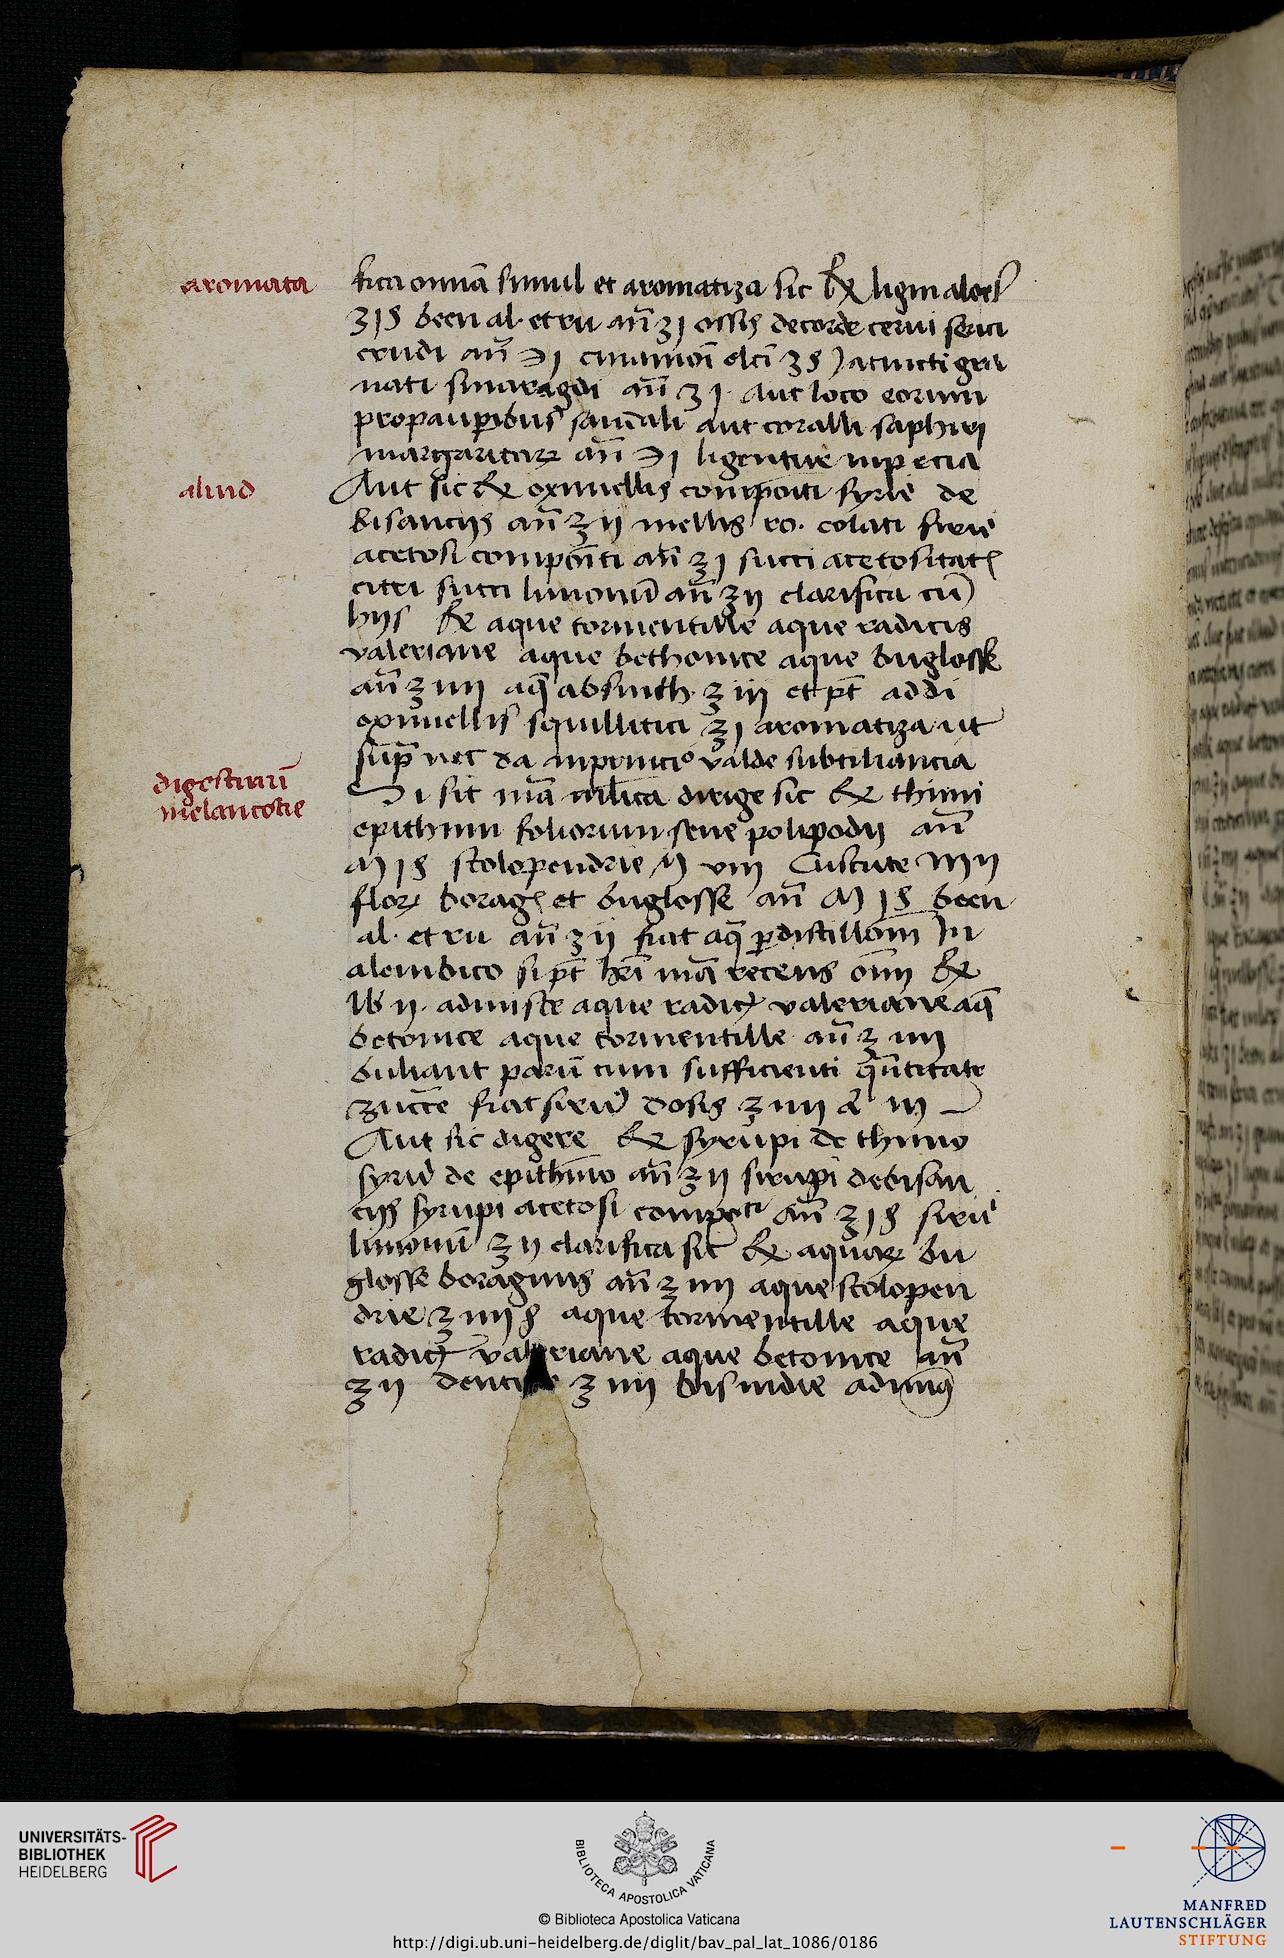 aromata
fica omnia simul et aromatiza sic ℞ ligni aloes
ʒ j ß been al. et ru an̄ ʒ j ossis de corde cervi serici
crudi an̄ ℈ j cinamoī elcī ʒ ß Jacincti gra
nati smaragdi an̄ ʒ j. Aut loco eorum
pro pauperibus sandali aut coralli saphiri
margaritarꝝ an̄ ℈ j ligentur in pecia
aliud
Aut sic ℞ oximellis compoīti syru de
bisanciis an̄ ℥ ij mellis ro. colati siru
acetosi compoīti an̄ ℥ j succi acetositatꝭ
citri succi limonū an̄ ℥ ij clarifica cū
hiis ℞ aque tormentille aque radicis
valeriane aque bethonice aque buglosse
an̄ ℥ iiij aq̄ absinth. ℥ iij et pt̄ addi
oximellis squillitici ℥ j aromatiza ut
sup̄ nec da in principio valde subtiliancia
digestivū
melancolie
Si sit mā mlīca dirige sic ℞ thimi
epithimi foliorum sene polipodii an̄
M j ß scolopendrie M viij Cuscute M ij
florꝝ boragꝭ et buglosse an̄ M j ß been
al. et ru an̄ ʒ ij fiat aq̄ ꝑ distillōm In
alembico si pt̄ hr̄i mā recens om̄i ℞
lb ij. admisce aque radicꝭ valeriane aq̄
betonice aque tormentille an̄ ℥ iiij
buliant parū cum sufficienti qn̄titate
zucc̄e fiat sirup̄ dosis ℥ iiij
Aut sic digere ℞ syrupi de thimo
syrup̄ de epithīmo an̄ ℥ ij sirupi de bisan
ciis syrupi acetosi compoti an̄ ℥ j ß siru
limonū ℥ ij clarifica sic ℞ aquarꝝ bu
glosse boraginis an̄ ℥ iiij aque scolopen
drie ℥ iiij ß aque tormentille aque
radicꝭ valeriane aque betonice an̄
℥ ij ℥ iiij bis in die
UNIVERSITÄTS-
BIBLIOTHEK
HEIDELBERG
BIBLIOTECA APOSTOLICA VATICANA
© Biblioteca Apostolica Vaticana
http://digi.ub.uni-heidelberg.de/diglit/bav_pal_lat_1086/0186
MANFRED
LAUTENSCHLÄGER
STIFTUNG